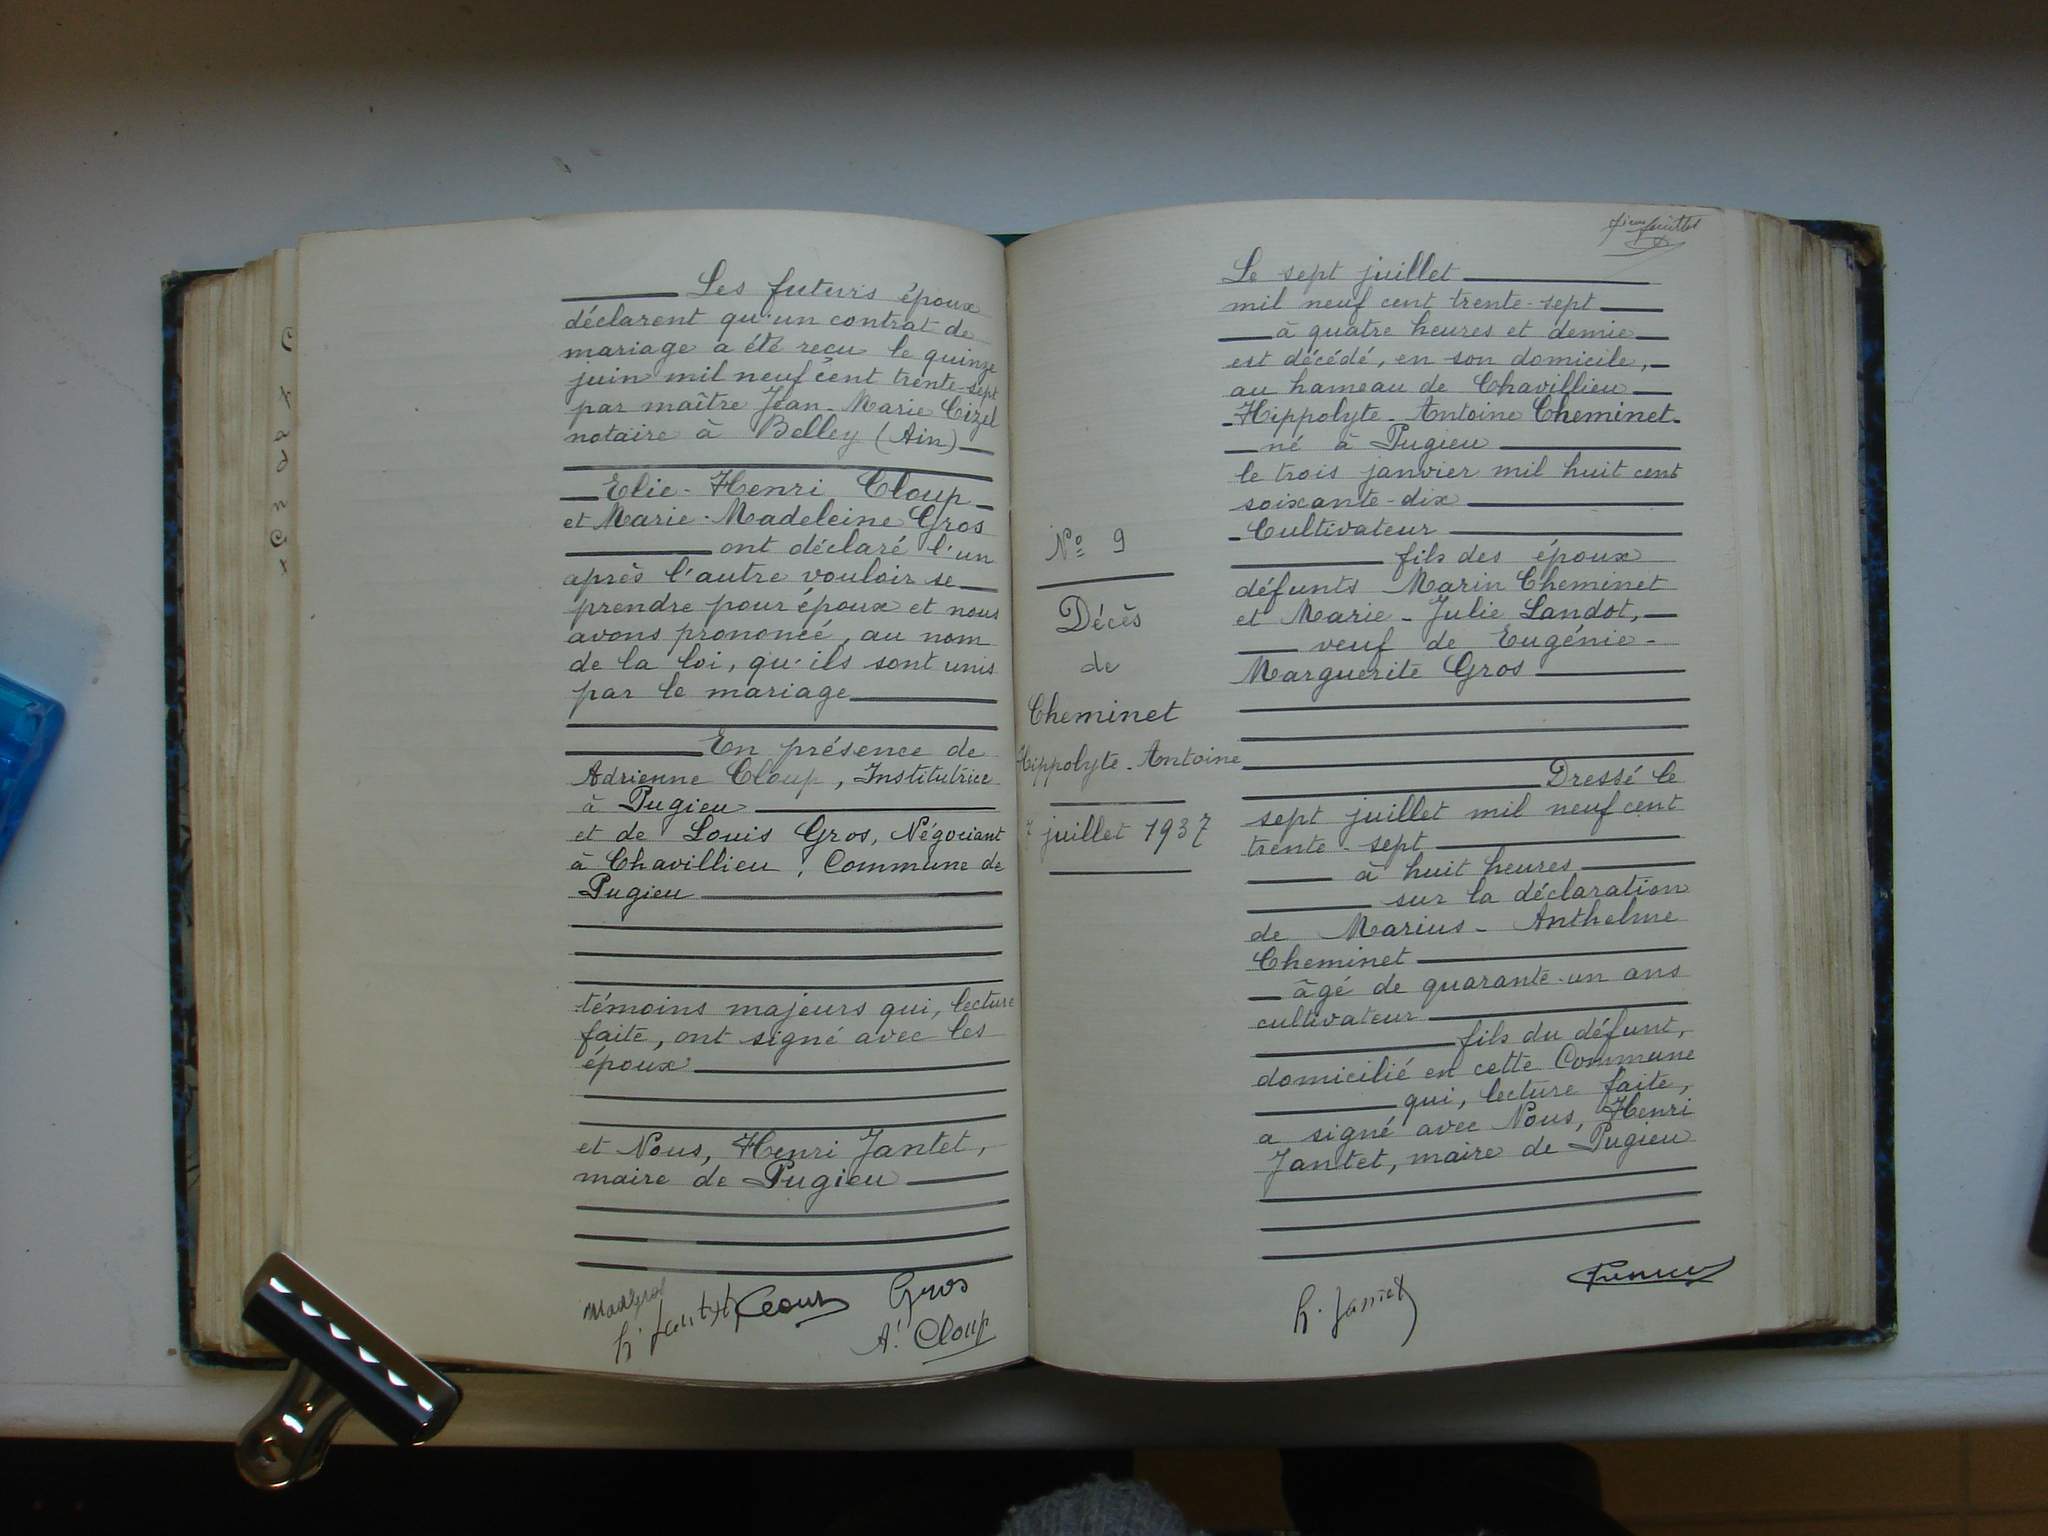 Les futurs époux
déclarent qu'un contrat de
mariage a été reçu le quinze
juin mil neuf cent trente-sept
par maître Jean-Marie Cizel
notaire à Belley (Ain)
Elie-Henri Cloup
et Marie-Madeleine Gros
ont déclaré l'un
après l'autre vouloir se
prendre pour époux et nous
avons prononcé, au nom
de la loi, qu'ils sont unis
par le mariage
En présence de
Adrienne Cloup, Institutrice
à Pugieu
et de Louis Gros, Négociant
à Chavillieu, Commune de
Pugieu
témoins majeurs qui, lecture
faite, ont signé avec les
époux
et Nous, Henri Jantet,
maire de Pugieu
MadGros
h. Jantet
Gros
A. Cloup
No 9
Décès
de
Cheminet
Hippolyte-Antoine
7 juillet 1937
Le sept juillet
mil neuf cent trente-sept
à quatre heures et demie
est décédé, en son domicile,
au hameau de Chavillieu
Hippolyte-Antoine Cheminet
né à Pugieu
le trois janvier mil huit cent
soixante-dix
Cultivateur
fils des époux
défunts Marin Cheminet
et Marie-Julie Landot,
veuf de Eugénie-
Marguerite Gros
Dressé le
sept juillet mil neuf cent
trente-sept
à huit heures
sur la déclaration
de Marius-Anthelme
Cheminet
âgé de quarante-un ans
cultivateur
fils du défunt,
domicilié en cette Commune
qui, lecture faite,
a signé avec Nous, Henri
Jantet, maire de Pugieu
h. Jantet